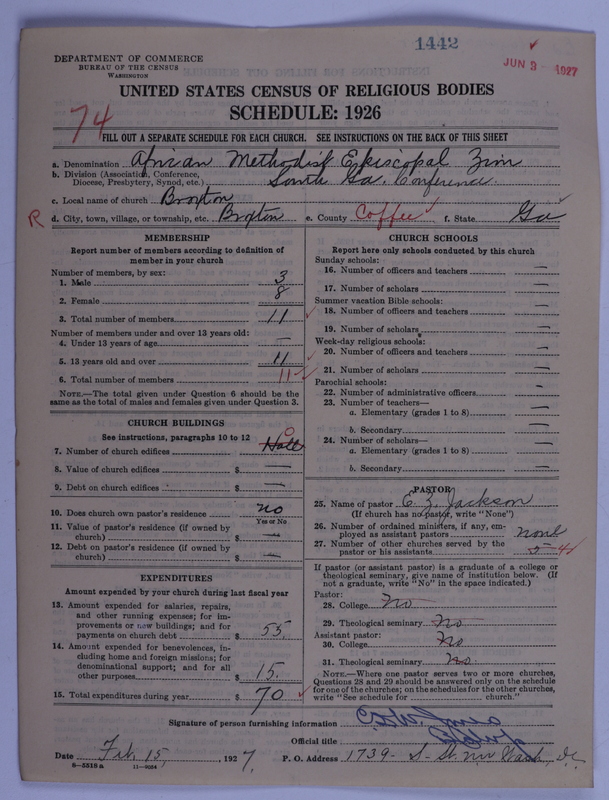 1442
JUN 3 1927
DEPARTMENT OF COMMERCE
BUREAU OF THE CENSUS
WASHINGTON
UNITED STATES CENSUS OF RELIGIOUS BODIES
SCHEDULE: 1926
74
FILL OUT A SEPARATE SCHEDULE FOR EACH CHURCH. SEE INSTRUCTIONS ON THE BACK OF THIS SHEET
a. Denomination African Methodist Episcopal Zion
b. Division (Association, Conference, Diocese, Presbytery, Synod, etc.) South Ga. Conference
c. Local name of church Broxton
R d. City, town, village, or township, etc. Broxton e. County Coffee f. State Ga
MEMBERSHIP
Report number of members according to definition of
member in your church
Number of members, by sex:
1. Male 3
2. Female 8
3. Total number of members 11
Number of members under and over 13 years old:
4. Under 13 years of age —
5. 13 years old and over 11
6. Total number of members 11
NOTE.—The total given under Question 6 should be
same as the total of males and females given under Question 3.
CHURCH BUILDINGS
See instructions, paragraphs 10 to 12
7. Number of church edifices Hall 0
8. Value of church edifices $ —
9. Debt on church edifices $ —
10. Does church own pastor's residence no
Yes or No
11. Value of pastor's residence (if owned by
church) $ —
12. Debt on pastor's residence (if owned by
church) $ —
EXPENDITURES
Amount expended by your church during last fiscal year
13. Amount expended for salaries, repairs,
and other running expenses; for im-
provements or new buildings; and for
payments on church debt $ 55.
14. Amount expended for benevolences, in-
cluding home and foreign missions; for
denominational support; and for all
other purposes $ 15.
15. Total expenditures during year $ 70
CHURCH SCHOOLS
Report here only schools conducted by this church
Sunday schools:
16. Number of officers and teachers —
17. Number of scholars —
Summer vacation Bible schools:
18. Number of officers and teachers —
19. Number of scholars —
Week-day religious schools:
20. Number of officers and teachers —
21. Number of scholars —
Parochial schools:
22. Number of administrative officers —
23. Number of teachers—
a. Elementary (grades 1 to 8) —
b. Secondary —
24. Number of scholars—
a. Elementary (grades 1 to 8) —
b. Secondary —
PASTOR
25. Name of pastor C. Z. Jackson
(If church has no pastor, write "None")
26. Number of ordained ministers, if any, em-
ployed as assistant pastors none
27. Number of other churches served by the
pastor or his assistants 5 4
If pastor (or assistant pastor) is a graduate of a college or
theological seminary, give name of institution below. (If
not a graduate, write "No" in the space indicated.)
Pastor:
28. College No
29. Theological seminary No
Assistant pastor:
30. College No
31. Theological seminary No
NOTE.—Where one pastor serves two or more churches,
Questions 28 and 29 should be answered only on the schedule
for one of the churches; on the schedules for the other churches,
write "See schedule for church."
Signature of person furnishing information
Official title Bishop
Date Feb. 15, 1927. P. O. Address 1739- S- St. NW Wash, DC
8—5518a 11—9034